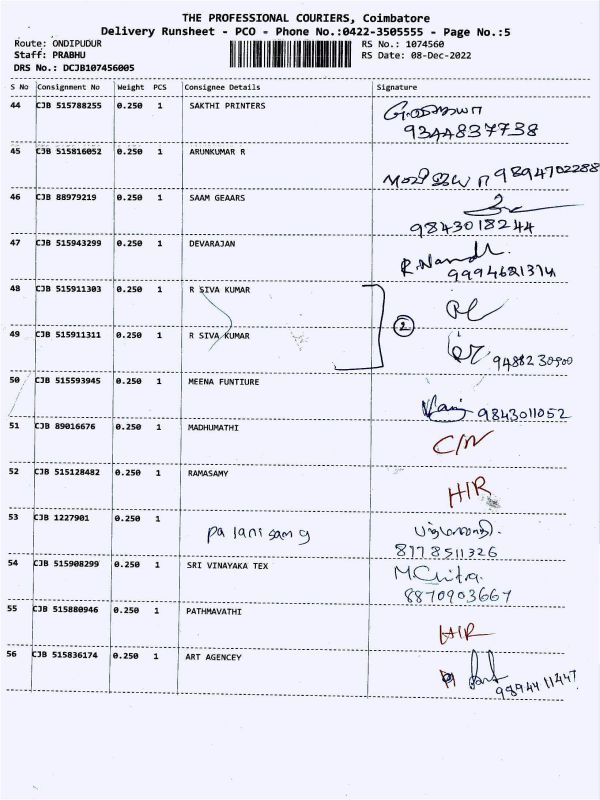 THE PROFESSIONAL COURIERS, Coimbatore
Delivery Runsheet - PCO - Phone No.:0422-3505555 - Page No.:5
Route: ONDIPUDUR RS No.: 1074560
Staff: PRABHU RS Date: 08-Dec-2022
DRS No.: DCJB107456005
S No Consignment No Weight PCS Consignee Details Signature
44 CJB 515788255 0.250 1 SAKTHI PRINTERS
9344837738
45 CJB 515816052 0.250 1 ARUNKUMAR R
9894702288
46 CJB 88979219 0.250 1 SAAM GEAARS
9843018244
47 CJB 515943299 0.250 1 DEVARAJAN R.Nandh
48 CJB 515911303 0.250 1 R SIVA KUMAR
2
49 CJB 515911311 0.250 1 R SIVA KUMAR
50 CJB 515593945 0.250 1 MEENA FUNTIURE
9843011052
51 CJB 89016676 0.250 1 MADHUMATHI
C/N
52 CJB 515128482 0.250 1 RAMASAMY
H/R
53 CJB 1227901 0.250 1 palanisamy
8178511326
54 CJB 515908299 0.250 1 SRI VINAYAKA TEX M.Chitra.
8870903667
55 CJB 515880946 0.250 1 PATHMAVATHI
H/R
56 CJB 515836174 0.250 1 ART AGENCEY
9894411447